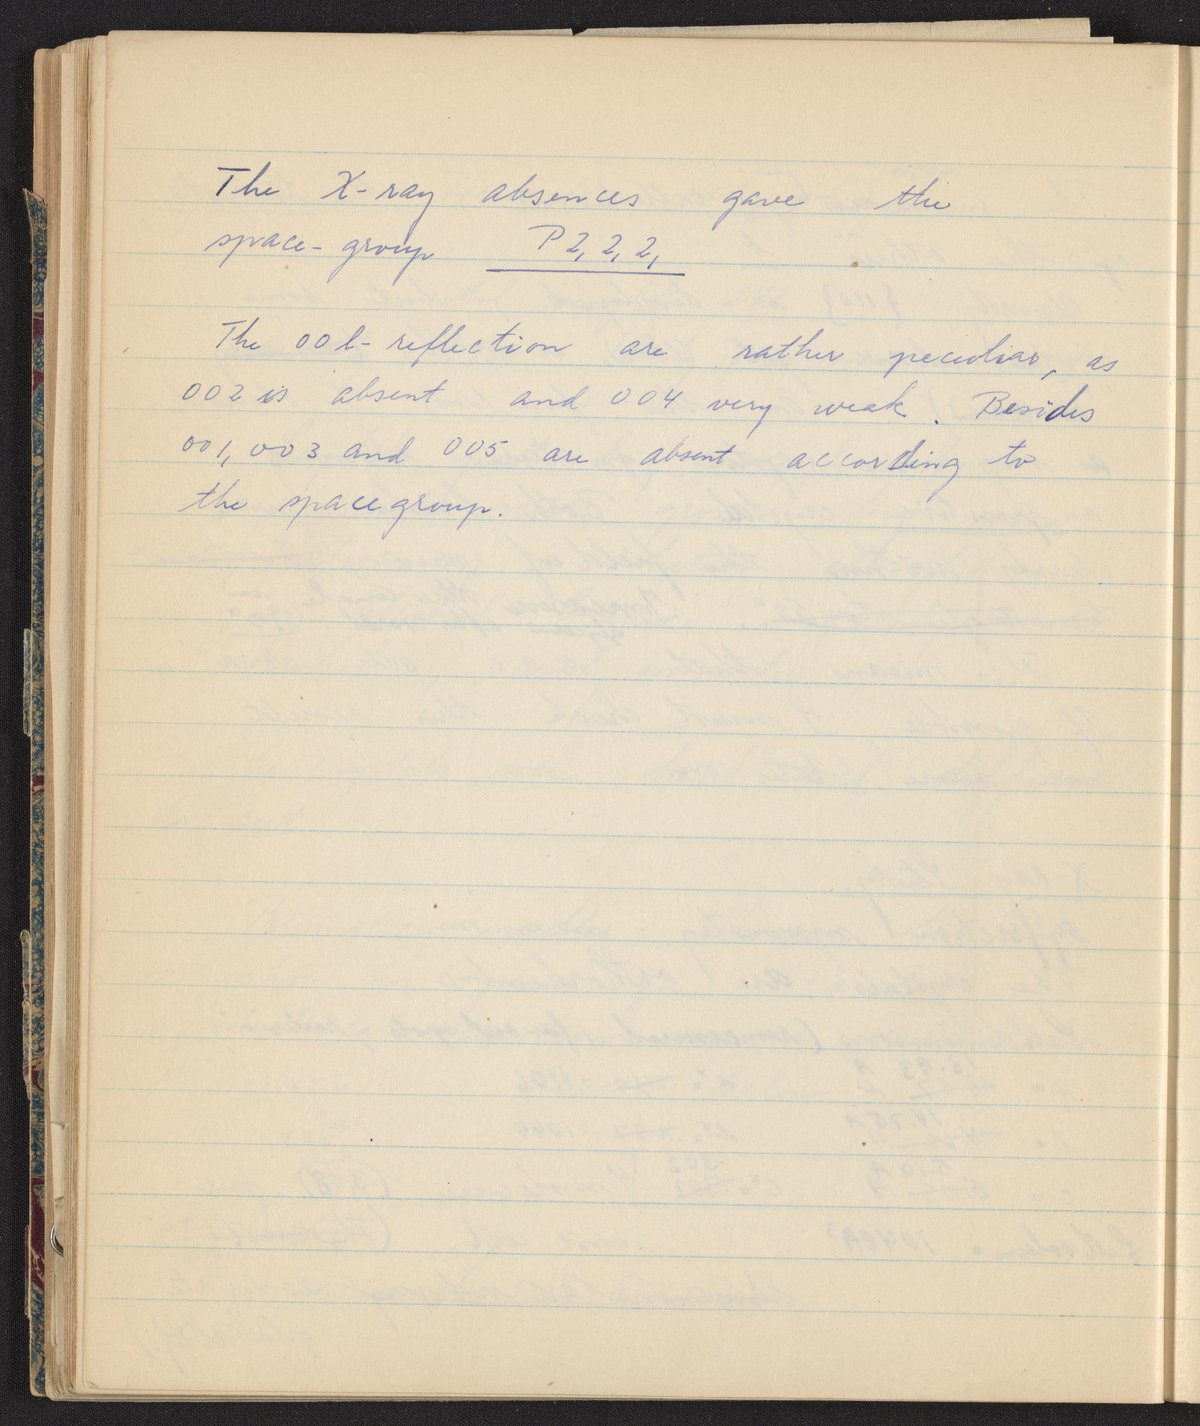 The X-ray absences gave the
space-group P2₁2₁2₁
The 00l-reflection are rather peculiar, as
002 is absent and 004 very weak. Besides
001, 003 and 005 are absent according to
the spacegroup.